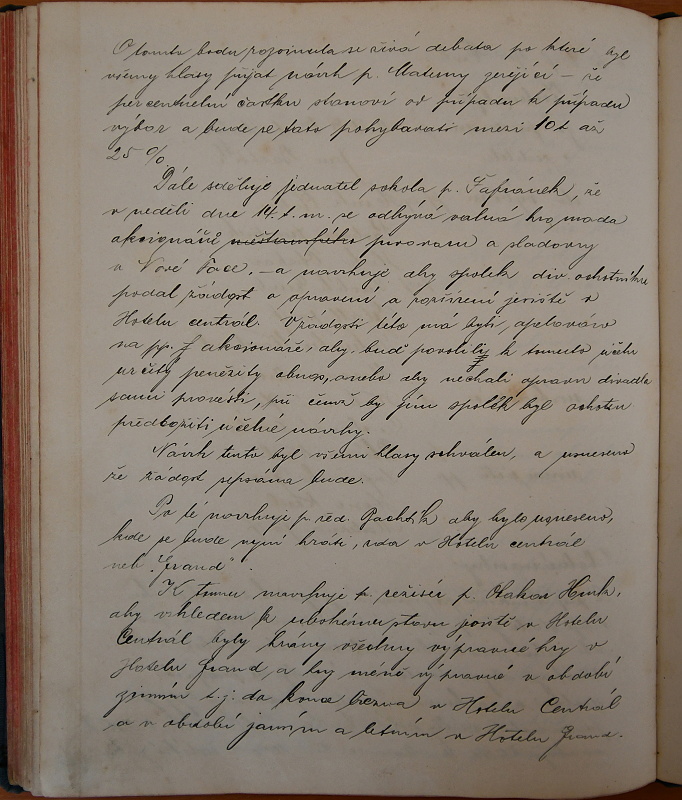 O tomto bodu rozvinula se živá debata po které byl
všemi hlasy přijat návrh p. Materny znějící – že
percentuelní částku stanoví od případu k případu
výbor a bude se tato pohybovati mezi 10 až
25 %.
Dále sděluje jednatel sokola p. Šafránek, že
v neděli dne 14. t. m. se odbývá valná hromada
akcionářů měšťanského pivovaru a sladovny
v Nové Pace. – a navrhuje aby spolek div. ochotníků
podal žádost o opravení a rozšíření jeviště v
Hotelu centrál. V žádosti této má býti apelováno
na pp. akcionáře, aby buď povolili k tomuto účelu
určitý peněžitý obnos, anebo aby nechali opravu divadla
sami provésti, při čemž by jim spolek byl ochoten
předložiti účelné návrhy.
Návrh tento byl všemi hlasy schválen, a usneseno
že žádost sepsána bude.
Po té navrhuje p. řed. aby bylo usneseno,
kde se bude nyní hráti, zda v Hotelu centrál
neb "Grand".
K tomu navrhuje p. režisér p. Otakar
aby vzhledem k ubohému stavu jeviště v Hotelu
Centrál byly hrány všechny výpravné hry v
Hotelu Grand, a hry méně výpravné v období
zimním t. j. do konce března v Hotelu Centrál
a v období jarním a letním v Hotelu Grand.